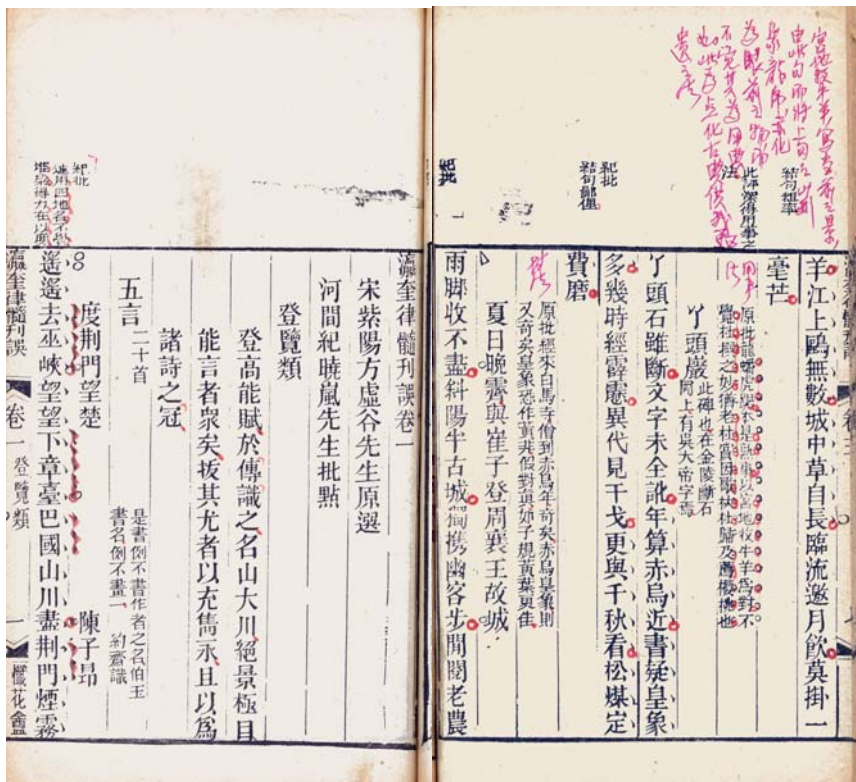 此評深得用事之
法
紀批
結句鄙俚
羊江上鷗無數城中草自長臨流邀月飲莫掛一
毫芒
原批龍蟠虎踞不是熟事以宮地牧牛羊為對不
丫頭巖此碑也在金陵斷石
岡上有吳大帝字焉
丫頭石雖斷文字未全訛年算赤烏近書疑皇象
多幾時經霹靂異代見干戈更與千秋看松煤定
費磨
原批經來白馬寺僧到赤烏年奇矣赤烏皇象則
又奇矣皇象恐作黃光假對真如子規黃葉更佳
夏日晚霽與崔子登周襄王故城
雨腳收不盡斜陽半古城獨攜幽客步閒閱老農
紀批
連用四地名不覺
瀛奎律髓刊誤卷一
宋紫陽方虛谷先生原選
河間紀曉嵐先生批點
登覽類
登高能賦於傳識之名山大川絕景極目
能言者眾矣拔其尤者以充雋永且以為
諸詩之冠
五言二十首
是書例不書作者之名伯玉
書名例不畫一 約齋識
度荊門望楚 陳子昂
遙遙去巫峽望望下章臺巴國山川盡荊門煙霧
瀛奎律髓刊誤 卷一 登覽類 懺花盦